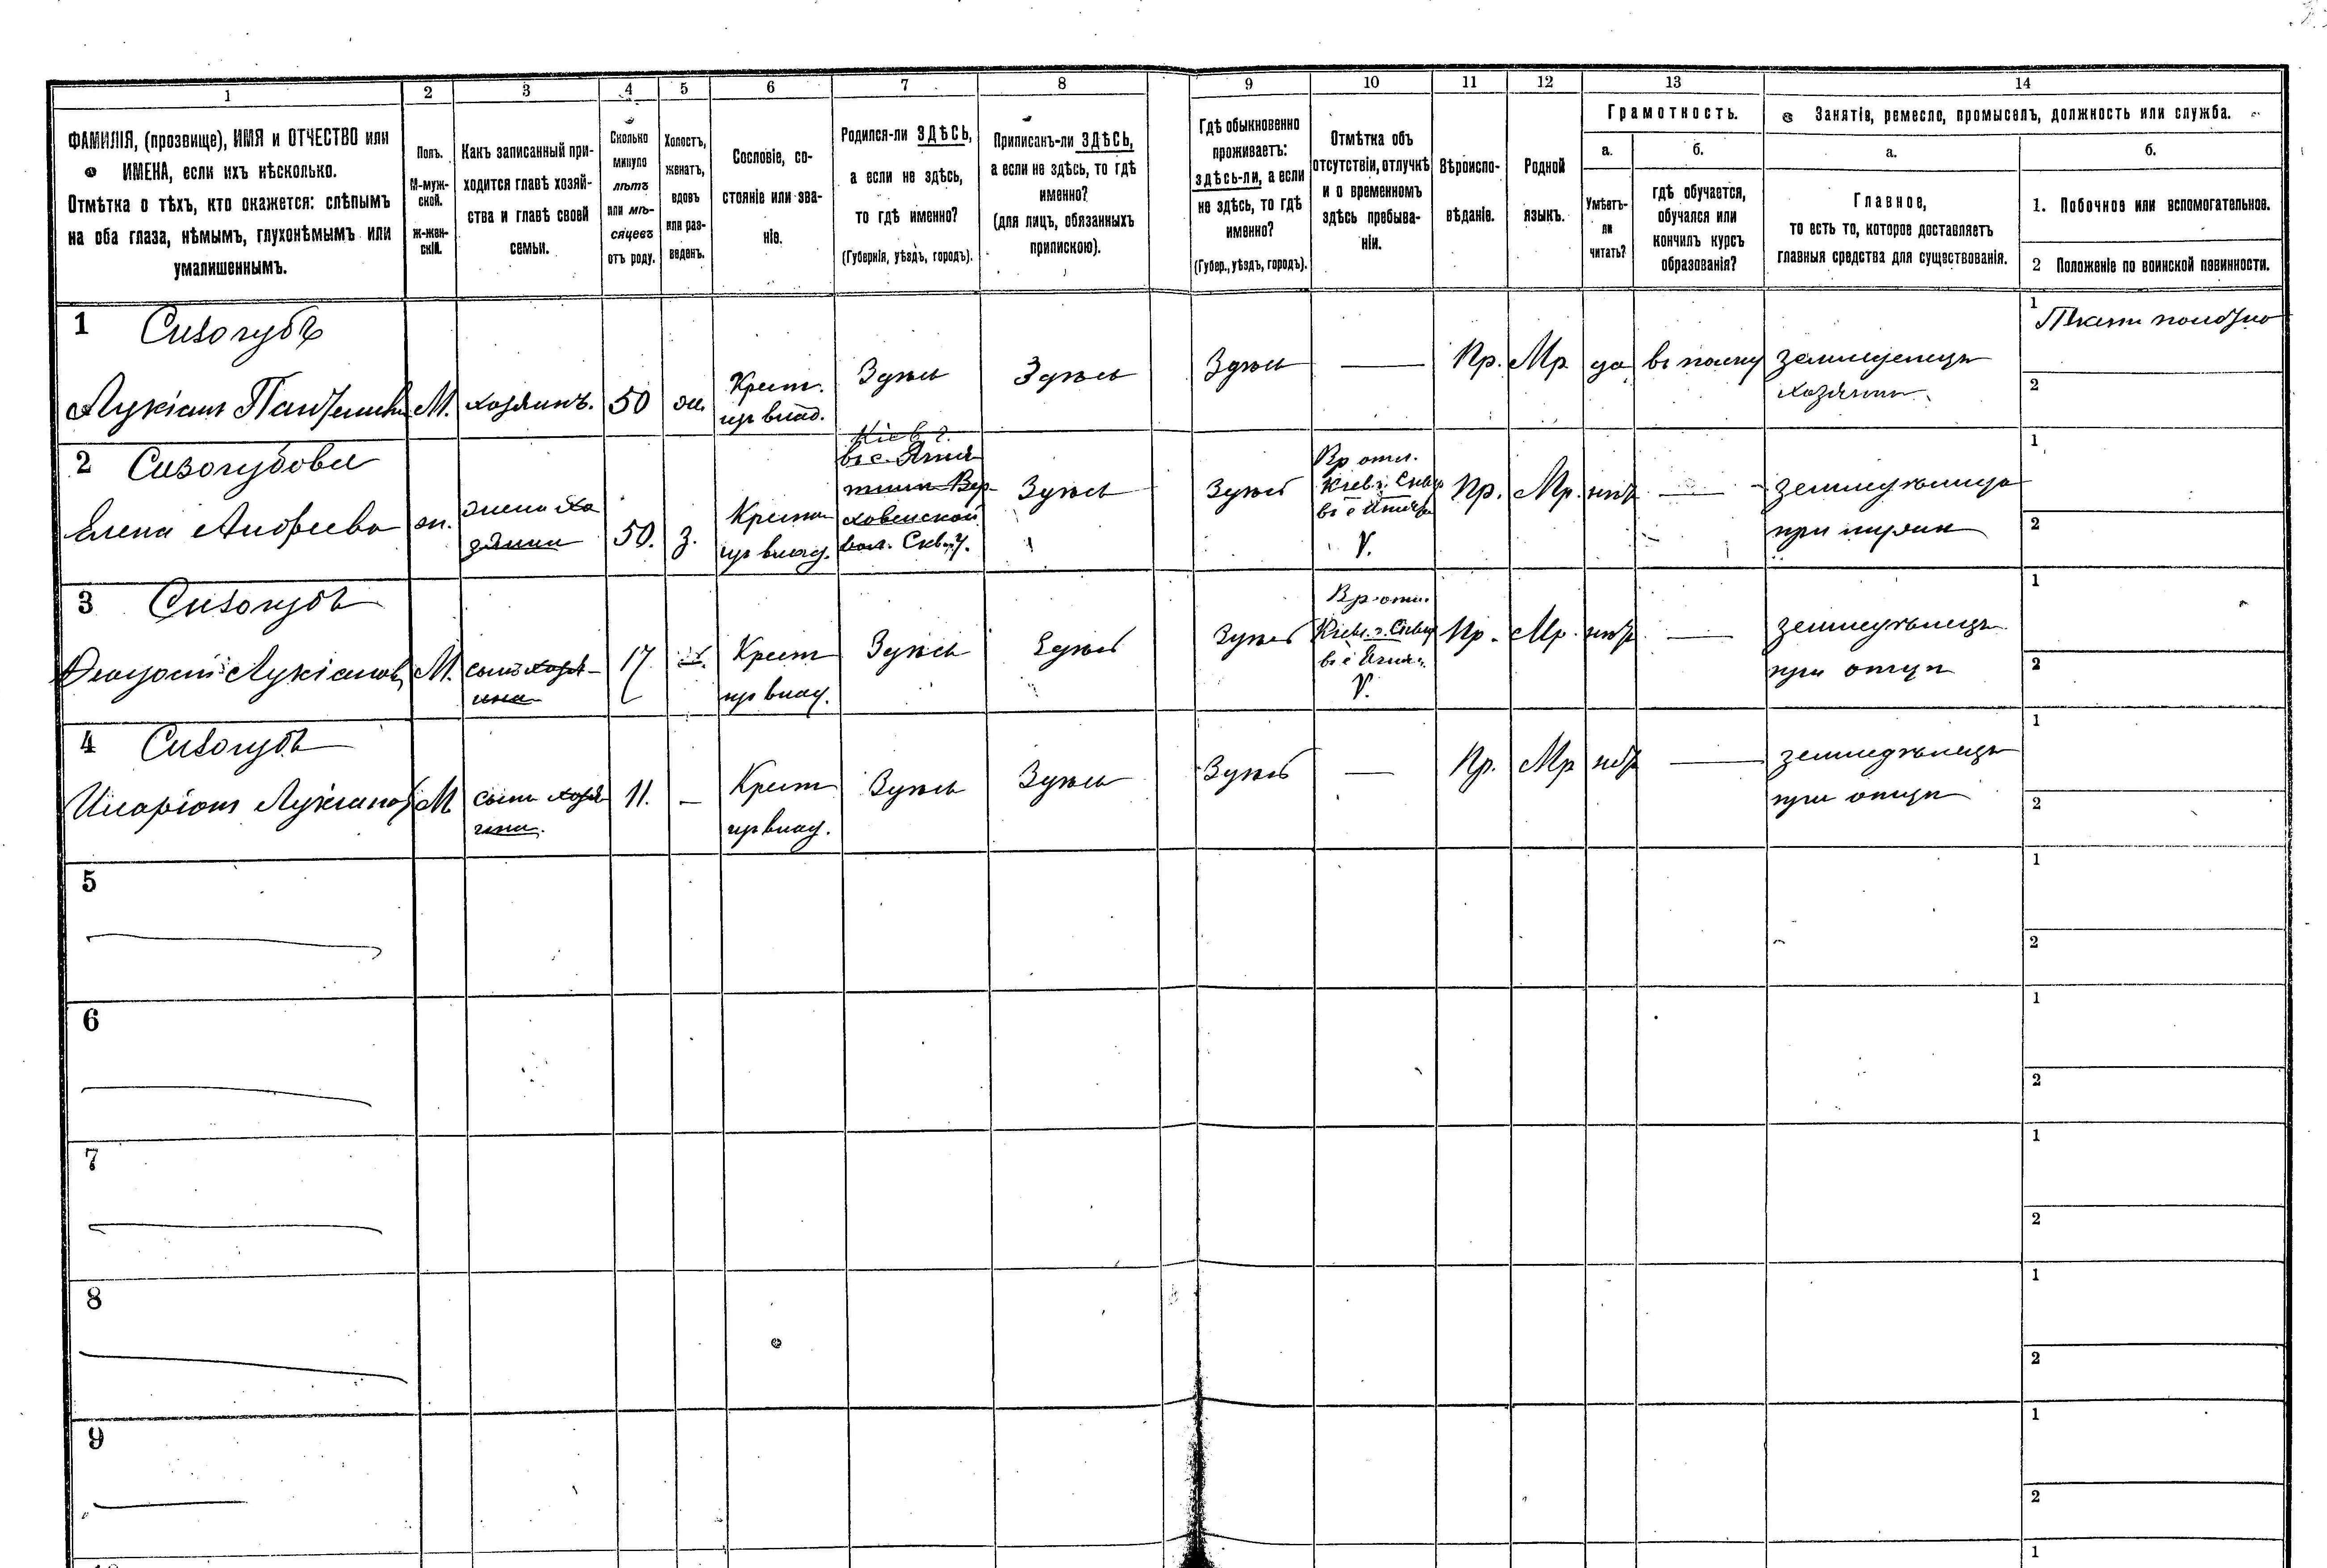 1 2 3 4 5 6 7 8 9 10 11 12 13 14
ФАМИЛІЯ, (прозвище), ИМЯ и ОТЧЕСТВО или
ИМЕНА, если ихъ нѣсколько.
Отмѣтка о тѣхъ, кто окажется: слѣпымъ
на оба глаза, нѣмымъ, глухонѣмымъ или
умалишеннымъ.
Полъ.
М-муж-
ской.
Ж-жен-
скій.
Какъ записанный при-
ходится главѣ хозяй-
ства и главѣ своей
семьи.
Сколько
минуло
лѣтъ
или мѣ-
сяцевъ
отъ роду.
Холостъ,
женатъ,
вдовъ
или раз-
веденъ.
Сословіе, со-
стояніе или зва-
ніе.
Родился-ли ЗДѢСЬ,
а если не здѣсь,
то гдѣ именно?
(Губернія, уѣздъ, городъ).
Приписанъ-ли ЗДѢСЬ,
а если не здѣсь, то гдѣ
именно?
(для лицъ, обязанныхъ
припискою).
Гдѣ обыкновенно
проживаетъ:
здѣсь-ли, а если
не здѣсь, то гдѣ
именно?
(Губер., уѣздъ, городъ).
Отмѣтка объ
отсутствіи, отлучкѣ
и о временномъ
здѣсь пребыва-
ніи.
Вѣроиспо-
вѣданіе.
Родной
языкъ.
Грамотность.
а.
Умѣетъ-
ли
читать?
б.
гдѣ обучается,
обучался или
кончилъ курсъ
образованія?
Занятіе, ремесло, промыселъ, должность или служба.
а.
Главное,
то есть то, которое доставляетъ
главныя средства для существованія.
б.
1. Побочное или вспомогательное.
2 Положеніе по воинской повинности.
1 Сизогубъ
Лукіанъ
М.
хозяинъ.
50
ж.
Крест.
изъ влад.
Здѣсь
Здѣсь
Здѣсь
—
Пр.
Мр
да
въ полку
земледѣлецъ
хозяинъ
1
2
2 Сизогубова
Елена Андреева
ж.
жена хо
зяина
50.
з.
Крест
изъ влад.
Кіев. г.
въ с.
Вер-
ховенской
вол. Скв. у.
Здѣсь
Здѣсь
Вр отл.
Кіев. г. Сквир
въ с
V.
Пр.
Мр.
нѣтъ
—
земледѣлица
при мужѣ
1
2
3 Сизогубъ
Ѳеодосій Лукіановъ
М.
сынъ хозя-
ина
17
Крест
изъ влад.
Здѣсь
Здѣсь
Здѣсь
Вр отл.
Кіев. г. Сквир
въ с
V.
Пр.
Мр.
нѣтъ
—
земледѣлецъ
при отцѣ
1
2
4 Сизогубъ
Иларіонъ Лукіановъ
М
сынъ хозя
ина.
11.
—
Крест
изъ влад.
Здѣсь
Здѣсь
Здѣсь
—
Пр.
Мр
нѣтъ
—
земледѣлецъ
при отцѣ
1
2
5
1
2
6
1
2
7
1
2
8
1
2
9
1
2
1